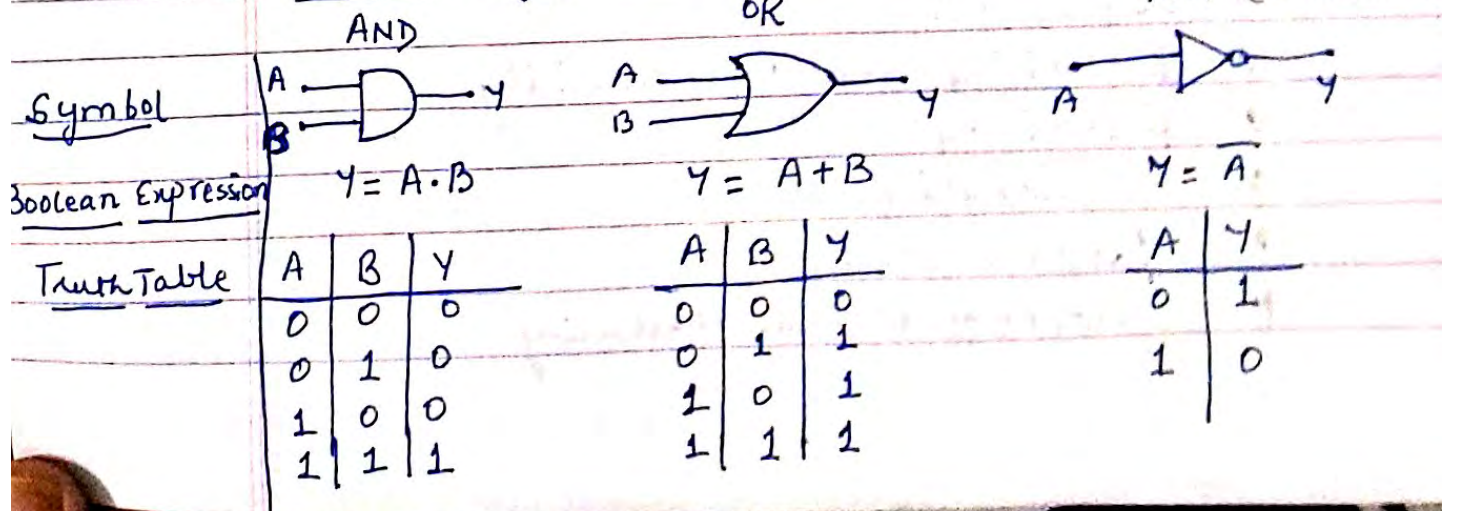 AND OR
Symbol A B Y A B Y A Y
Boolean Expression Y = A·B Y = A+B Y = A̅
Truth Table A B Y A B Y A Y
0 0 0 0 0 0 0 1
0 1 0 0 1 1 1 0
1 0 0 1 0 1
1 1 1 1 1 1